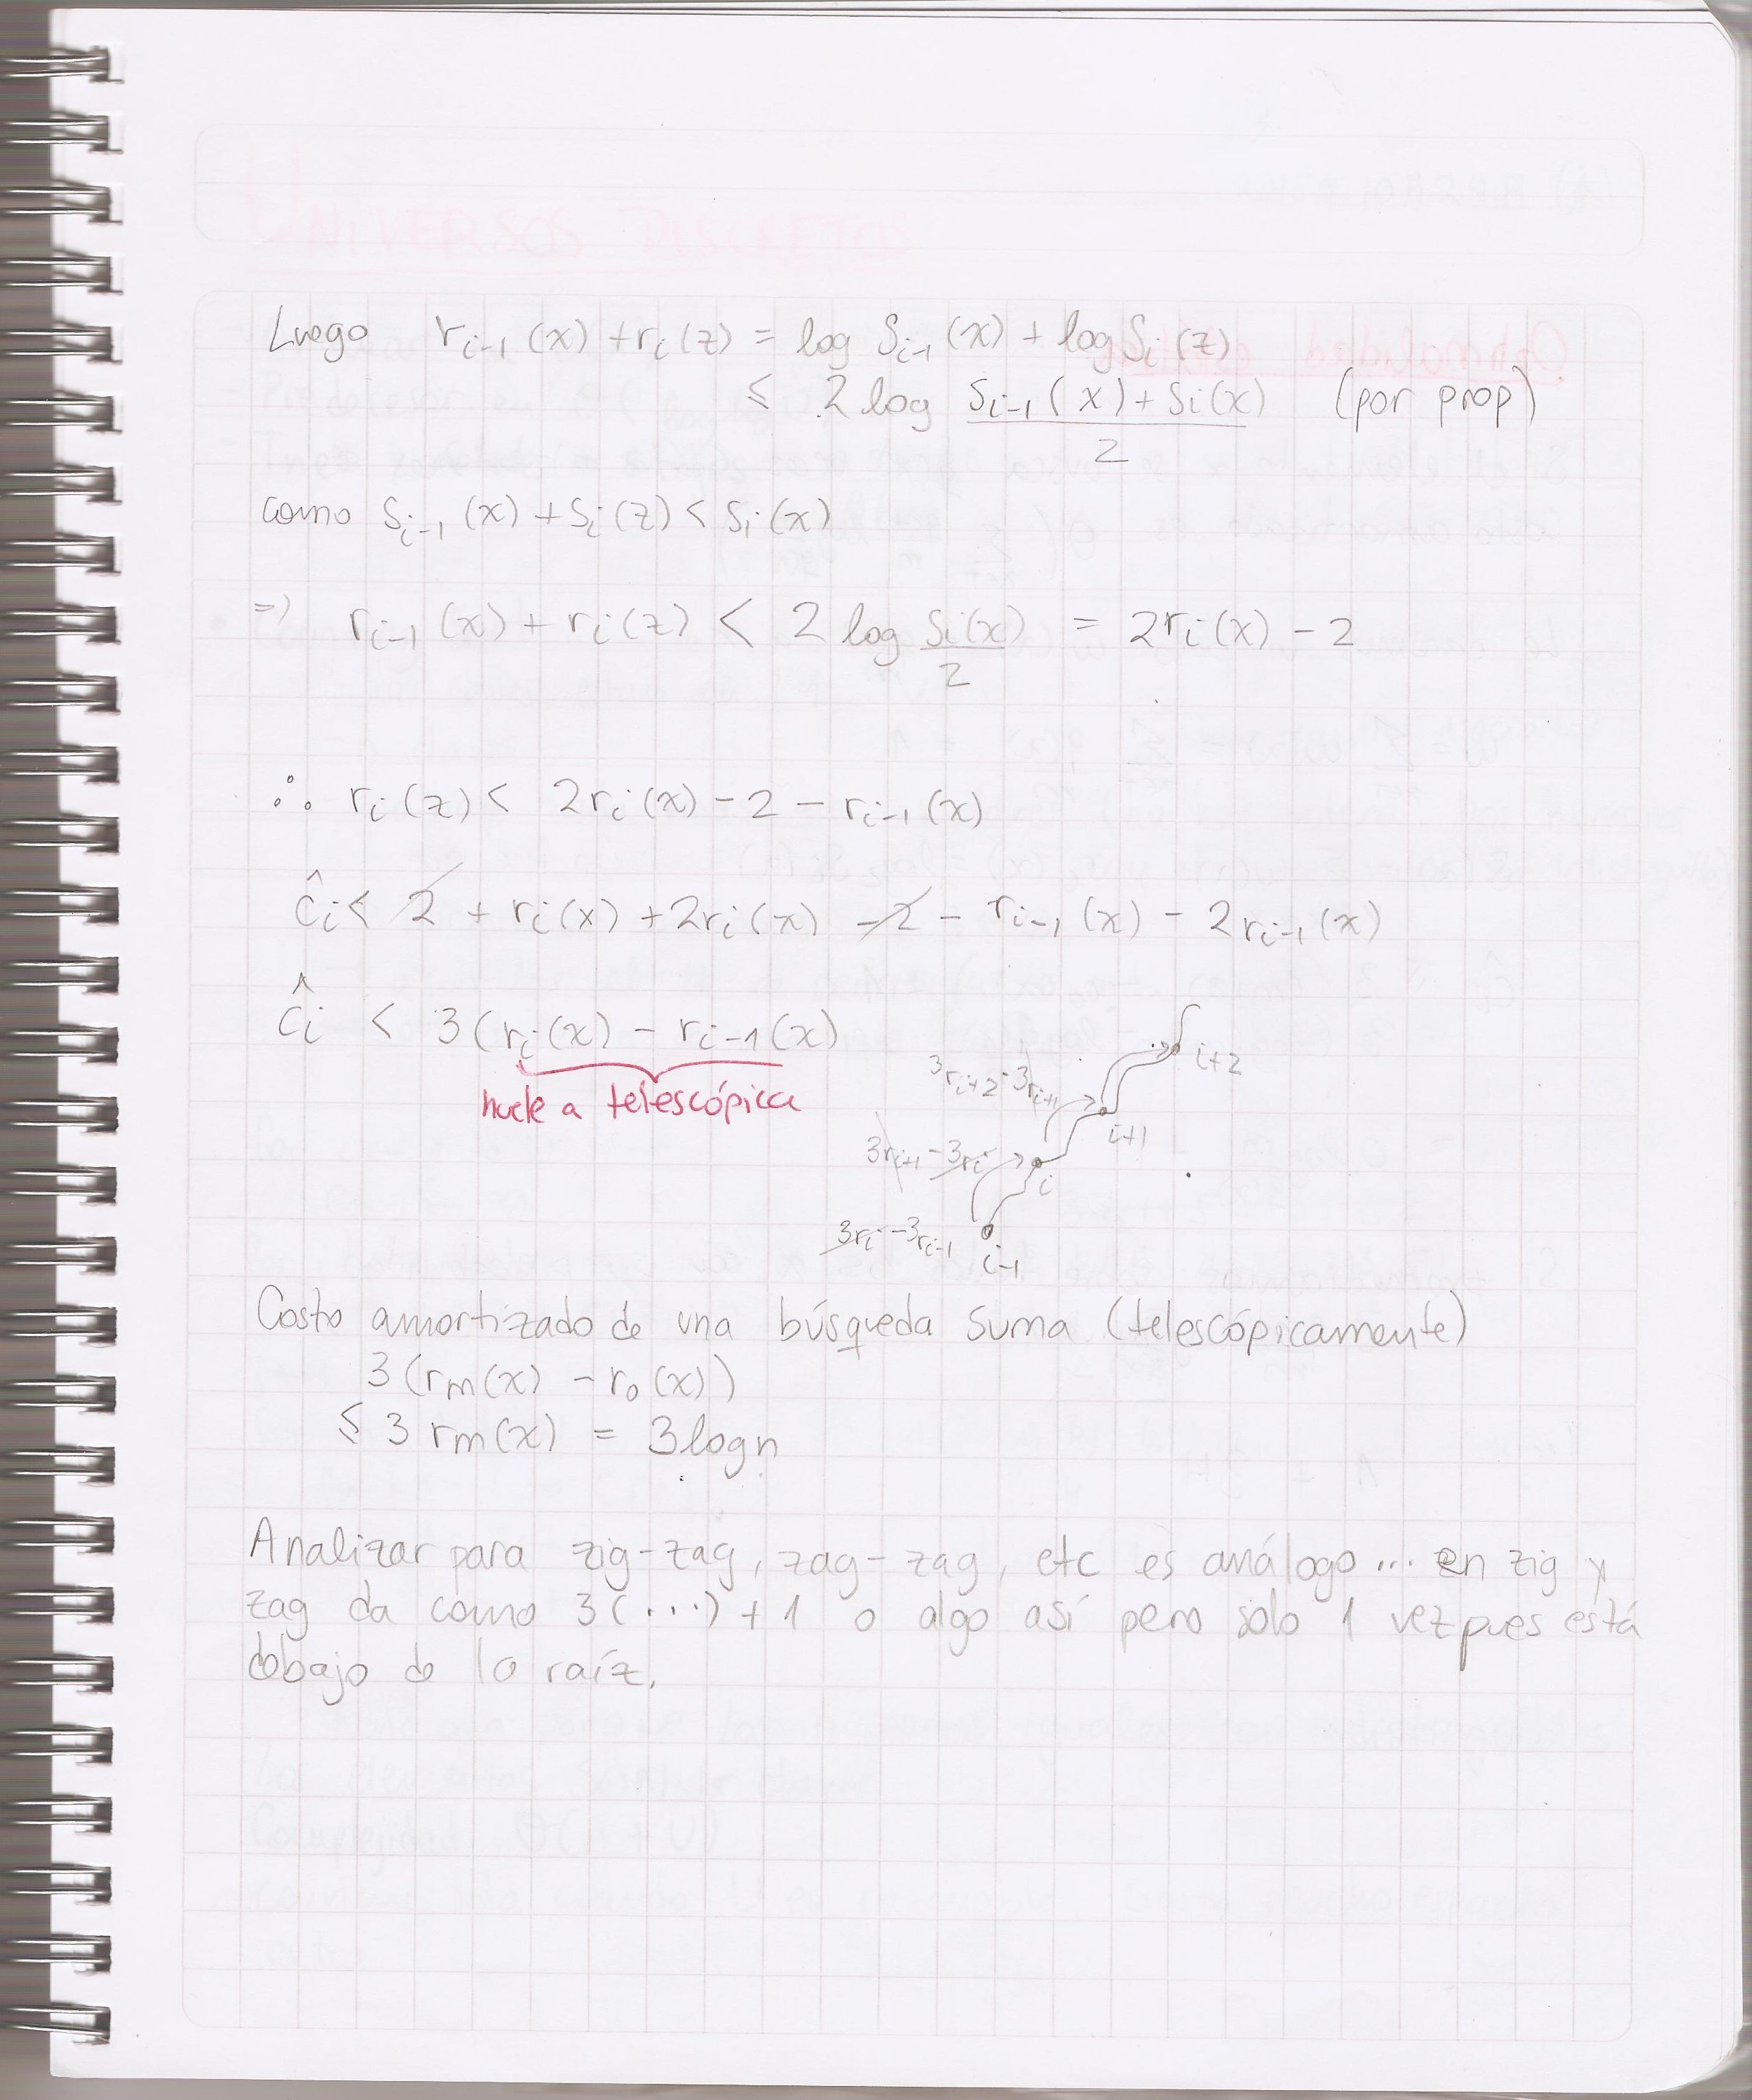 UNIVERSOS DISCRETOS
Luego r_{i-1}(x) + r_i(z) = log S_{i-1}(x) + log S_i(z)
≤ 2 log (S_{i-1}(x) + S_i(x))/2 (por prop)
como S_{i-1}(x) + S_i(z) < S_i(x)
=> r_{i-1}(x) + r_i(z) < 2 log S_i(x)/2 = 2r_i(x) - 2
∴ r_i(z) < 2r_i(x) - 2 - r_{i-1}(x)
ĉ_i < 2 + r_i(x) + 2r_i(x) - 2 - r_{i-1}(x) - 2r_{i-1}(x)
ĉ_i < 3(r_i(x) - r_{i-1}(x)
huele a telescópica
i+2
3r_{i+2} - 3r_{i+1}
i+1
3r_{i+1} - 3r_i
i
3r_i - 3r_{i-1}
i-1
Costo amortizado de una búsqueda suma (telescópicamente)
3(r_m(x) - r_0(x))
≤ 3 r_m(x) = 3 log n
Analizar para zig-zag, zag-zag, etc es análogo... en zig y
zag da como 3(...) + 1 o algo así pero solo 1 vez pues está
debajo de la raíz.